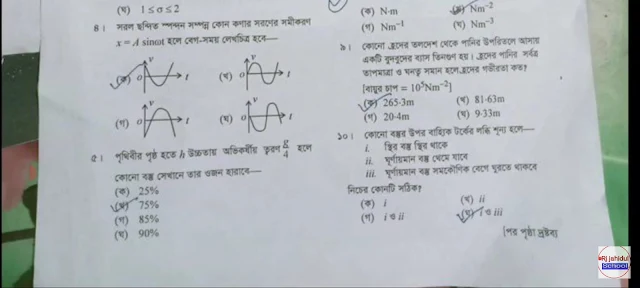 (ঘ) 1≤σ≤2
৪। সরল ছন্দিত স্পন্দন সম্পন্ন কোন কণার সরণের সমীকরণ
x = A sinωt হলে বেগ-সময় লেখচিত্র হবে—
(ক) v 0 t (খ) v 0 t
(গ) v 0 t (ঘ) v 0 t
৫। পৃথিবীর পৃষ্ঠ হতে h উচ্চতায় অভিকর্ষীয় ত্বরণ g/4 হলে
কোনো বস্তু সেখানে তার ওজন হারাবে—
(ক) 25%
(খ) 75%
(গ) 85%
(ঘ) 90%
(ক) N·m (খ) Nm⁻²
(গ) Nm⁻¹ (ঘ) Nm⁻³
৯। কোনো হ্রদের তলদেশ থেকে পানির উপরিতলে আসায়
একটি বুদবুদের ব্যাস তিনগুণ হয়। হ্রদের পানির সর্বত্র
তাপমাত্রা ও ঘনত্ব সমান হলে হ্রদের গভীরতা কত?
[বায়ুর চাপ = 10⁵Nm⁻²]
(ক) 265·3m (খ) 81·63m
(গ) 20·4m (ঘ) 9·33m
১০। কোনো বস্তুর উপর বাহ্যিক টর্কের লব্ধি শূন্য হলে—
i. স্থির বস্তু স্থির থাকে
ii. ঘূর্ণায়মান বস্তু থেমে যাবে
iii. ঘূর্ণায়মান বস্তু সমকৌণিক বেগে ঘুরতে থাকবে
নিচের কোনটি সঠিক?
(ক) i (খ) ii
(গ) i ও ii (ঘ) i ও iii
[পর পৃষ্ঠা দ্রষ্টব্য
Rj jahidul
School